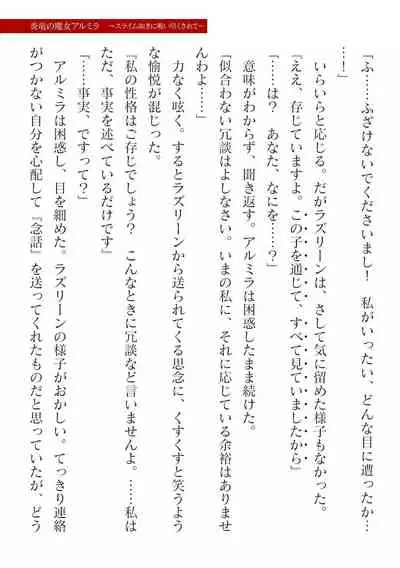 炎竜の魔女アルミラ　～スライム如きに吸い尽くされて～
「ふ……ふざけないでくださいまし！　私がいったい、どんな目に遭ったか…
…！」
いらいらと応じる。だがラズリーンは、さして気に留めた様子もなかった。
『ええ、存じていますよ。この子を通じて、すべて見ていましたから』
「……は？　あなた、なにを……？」
意味がわからず、聞き返す。アルミラは困惑したまま続けた。
「似合わない冗談はよしなさい。いまの私に、それに応じている余裕はありませ
んわよ……」
力なく呟く。するとラズリーンから送られてくる思念に、くすくすと笑うよう
な愉悦が混じった。
『私の性格はご存じでしょう？　こんなときに冗談など言いませんよ。……私は
ただ、事実を述べているだけです』
「……事実、ですって？」
アルミラは困惑し、目を細めた。ラズリーンの様子がおかしい。てっきり連絡
がつかない自分を心配して『念話』を送ってくれたものだと思っていたが、どう